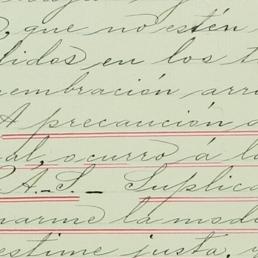 , que no estén
lidos en los t
embración arr
A precaución d
al, ocurro á la
P. A.-S.- Suplica
narme la mod
estime justa, y